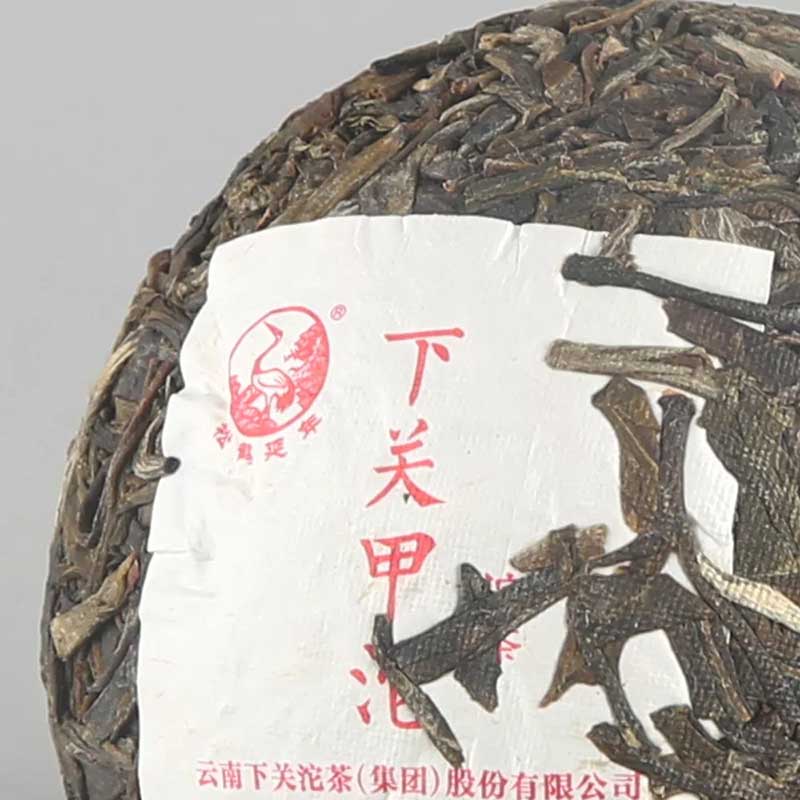 ®
松鹤延年
下关甲沱
云南下关沱茶(集团)股份有限公司